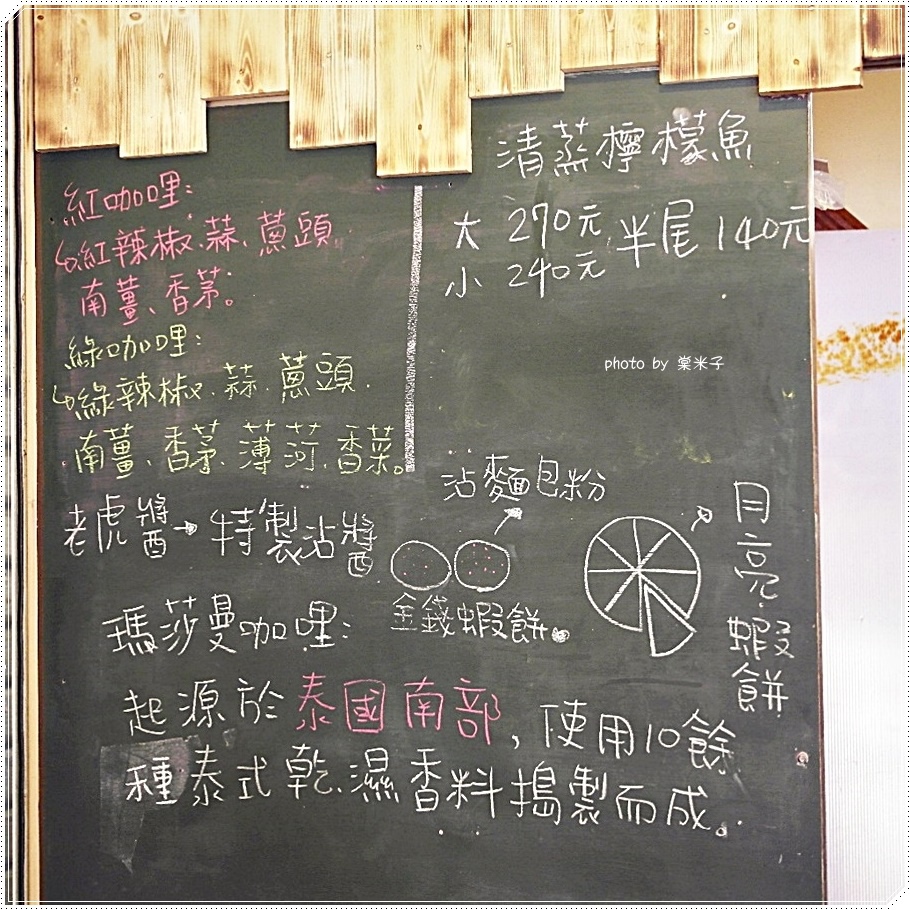 紅咖哩:
↳紅辣椒、蒜、蔥頭、
南薑、香茅。
綠咖哩:
↳綠辣椒、蒜、蔥頭、
南薑、香茅、薄荷、香菜。
清蒸檸檬魚
大 270元 半尾 140元
小 240元
photo by 棠米子
老虎醬→特製沾醬
沾麵包粉
金錢蝦餅。
月亮蝦餅
瑪莎曼咖哩:
起源於泰國南部，使用10餘
種泰式乾、濕香料搗製而成。